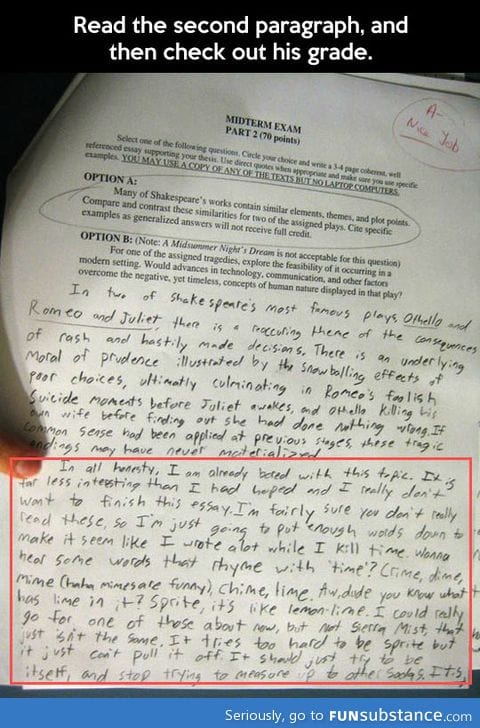 Read the second paragraph, and
then check out his grade.
A-
Nice Job
MIDTERM EXAM
PART 2 (70 points)
Select one of the following questions. Circle your choice and write a 3-4 page coherent, well
referenced essay supporting your thesis. Use direct quotes when appropriate and make sure you use specific
examples. YOU MAY USE A COPY OF ANY OF THE TEXTS BUT NO LAPTOP COMPUTERS.
OPTION A:
Many of Shakespeare's works contain similar elements, themes, and plot points.
Compare and contrast these similarities for two of the assigned plays. Cite specific
examples as generalized answers will not receive full credit.
OPTION B: (Note: A Midsummer Night's Dream is not acceptable for this question)
For one of the assigned tragedies, explore the feasibility of it occurring in a
modern setting. Would advances in technology, communication, and other factors
overcome the negative, yet timeless, concepts of human nature displayed in that play?
In two of Shakespeare's most famous plays, Othello and
Romeo and Juliet, there is a reoccuring theme of the consequences
of rash and hastily made decisions. There is an underlying
moral of prudence illustrated by the snowballing effects of
poor choices, ultimatly culminating in Romeo's foolish
suicide moments before Juliet awakes, and Othello killing his
own wife before finding out she had done nothing wrong. If
common sense had been applied at previous stages, these tragic
endings may have never materialized.
In all honesty, I am already bored with this topic. It is
far less interesting than I had hoped and I really don't
want to finish this essay. I'm fairly sure you don't really
read these, so I'm just going to put enough words down to
make it seem like I wrote alot while I kill time. Wanna
hear some words that rhyme with 'time'? Crime, dime,
mime (haha mimes are funny), chime, lime. Aw, dude you know what
has lime in it? Sprite, it's like lemon-lime. I could really
go for one of those about now, but not Sierra Mist, that
just isn't the same. It tries too hard to be sprite but
it just can't pull it off. It should just try to be
itself, and stop trying to measure up to other sodas. It's
Seriously, go to FUNsubstance.com